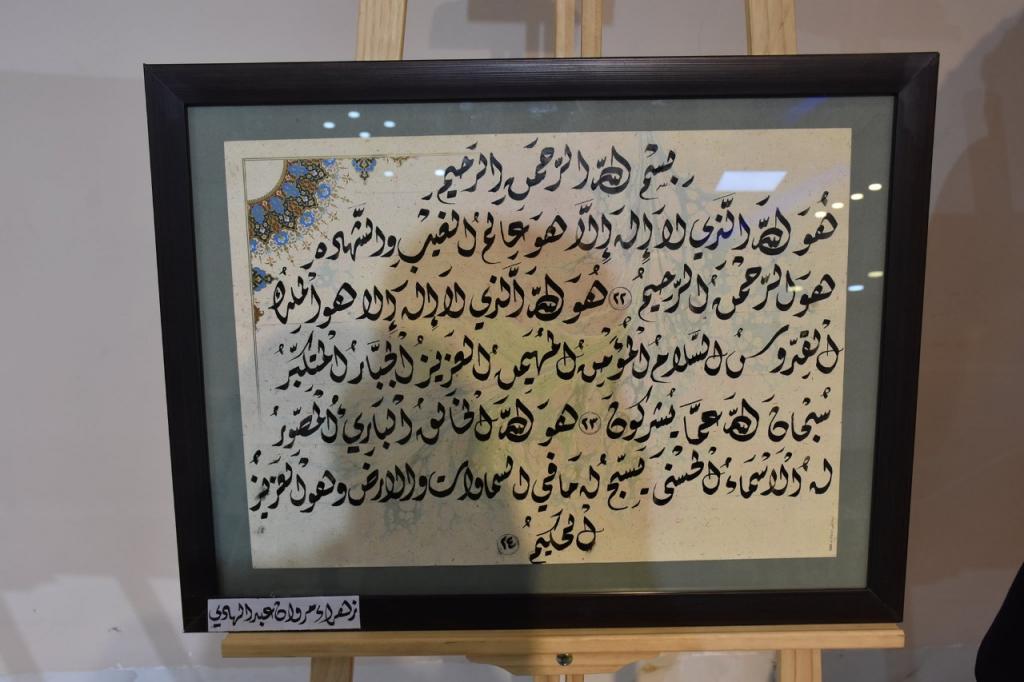 بِسْمِ اللهِ الرَّحْمَنِ الرَّحِيمِ
هُوَ اللهُ الَّذِي لا إِلهَ إِلَّا هوَ عَالِمُ الغَيْبِ والشَّهَدهِ
هوَ الرَّحْمَنُ الرَّحِيمُ ٢٢ هُوَ اللهُ الَّذِي لا إِلهَ إِلا هو المَلِكُ
القُدُّوسُ السَّلامُ الْمُؤْمِنُ المُهَيْمِنُ العَزِيزُ الجَبَّارُ الْمُتَكَبِّرُ
سُبْحَانَ اللهِ عمَّا يُشرِكُونَ ٢٣ هوَ اللهُ الْخَالِقُ الْبَارِئُ الْمُصَوِّرُ
لهُ الْأَسْمَاءُ الْحُسْنَى يُسَبِّحُ لهُ مَا فِي السماوات والارضِ وهوَ العَزِيزُ
الحَكِيمُ ٢٤
زهراء مروان عبد الهادي